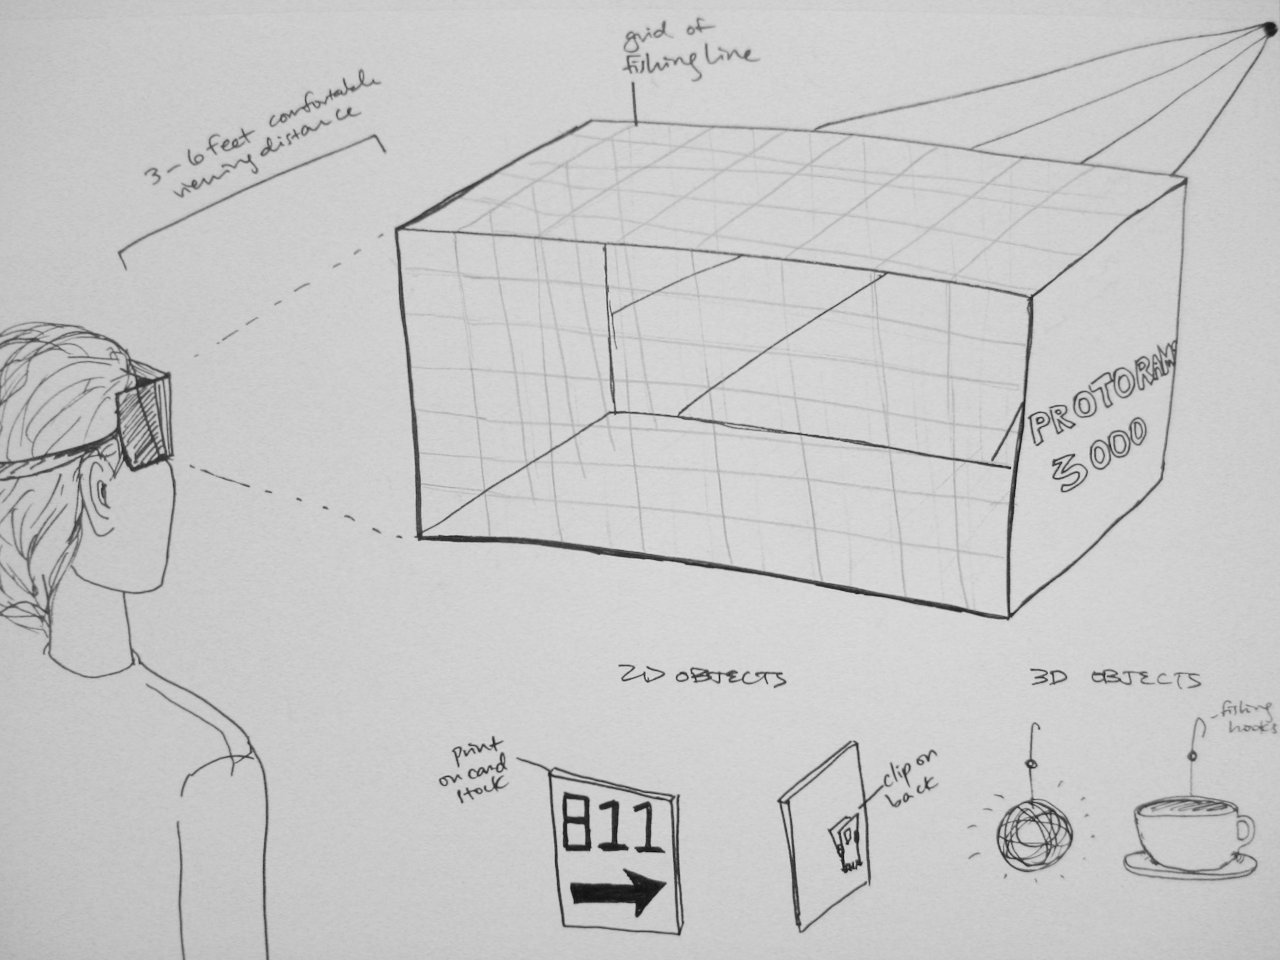 grid of
fishing line
3-6 feet comfortable
viewing distance
PROTORAM
3000
2D OBJECTS
3D OBJECTS
print
on card
stock
811
clip on
back
fishing
hooks